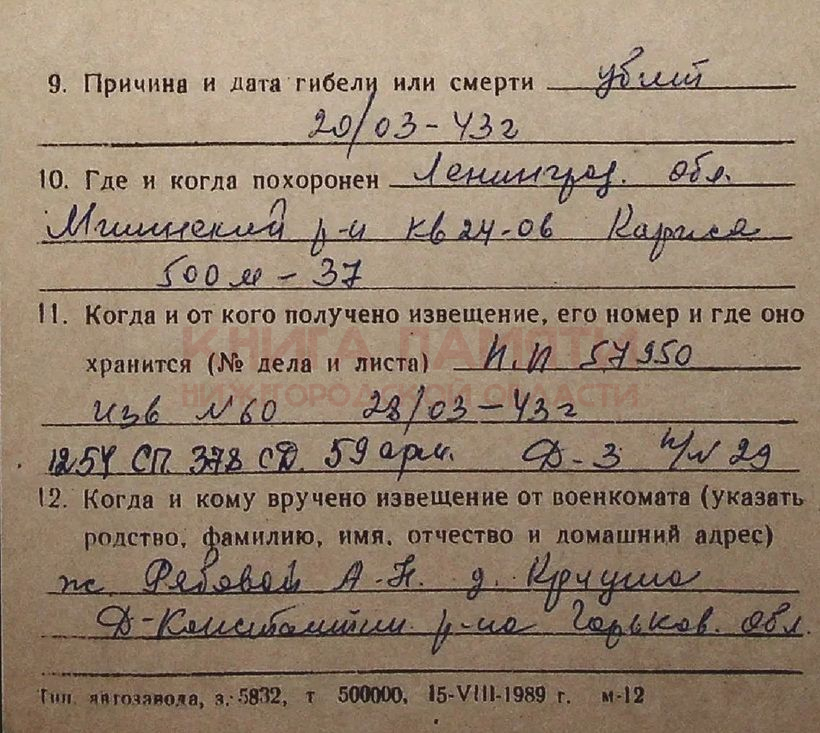 9. Причина и дата гибели или смерти убит
20/03-43г
10. Где и когда похоронен Ленинград. обл.
Мгинский р-н кв 24-ов
500 м - 37
11. Когда и от кого получено извещение, его номер и где оно
хранится (№ дела и листа) П.П 57950
КНИГА ПАМЯТИ
НИЖЕГОРОДСКОЙ ОБЛАСТИ
изв №60 28/03-43г
1254 СП. 378 СД. 59 арм. Д-3 п/N 29
12. Когда и кому вручено извещение от военкомата (указать
родство, фамилию, имя, отчество и домашний адрес)
ж Рябовой А-Н. д. Кручша
Д-Константин р-на Горьков. обл.
Тип. автозавода, з. 5832, т 500000, 15-VIII-1989 г. м-12